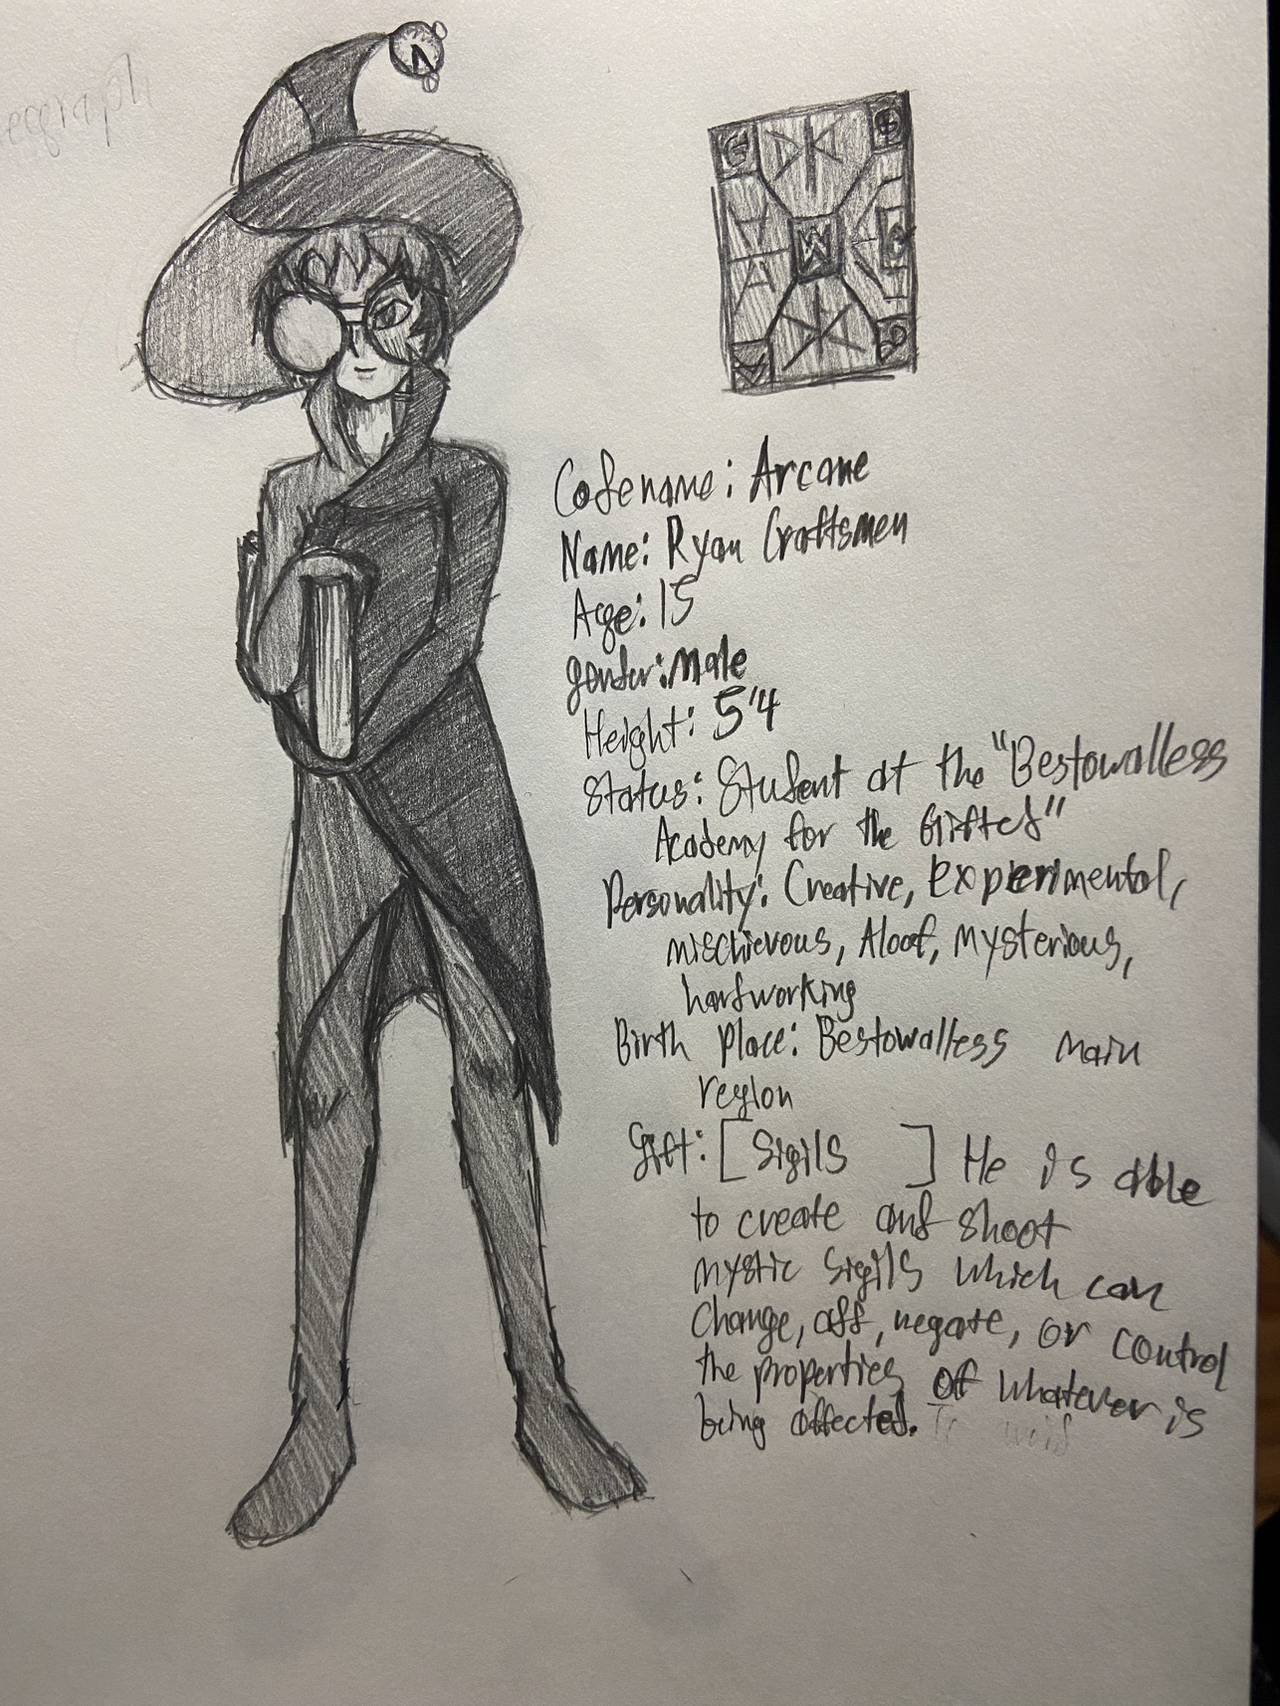 Codename: Arcane
Name: Ryan Craftsmen
Age: 15
gender: Male
Height: 5'4
Status: Student at the "Bestowalless
Academy for the Gifted"
Personality: Creative, Experimental,
mischievous, Aloof, Mysterious,
hardworking
Birth Place: Bestowalless main
region
Gift: [Sigils ] He is able
to create and shoot
mystic sigils which can
Change, add, negate, or control
the properties of whatever is
being affected.